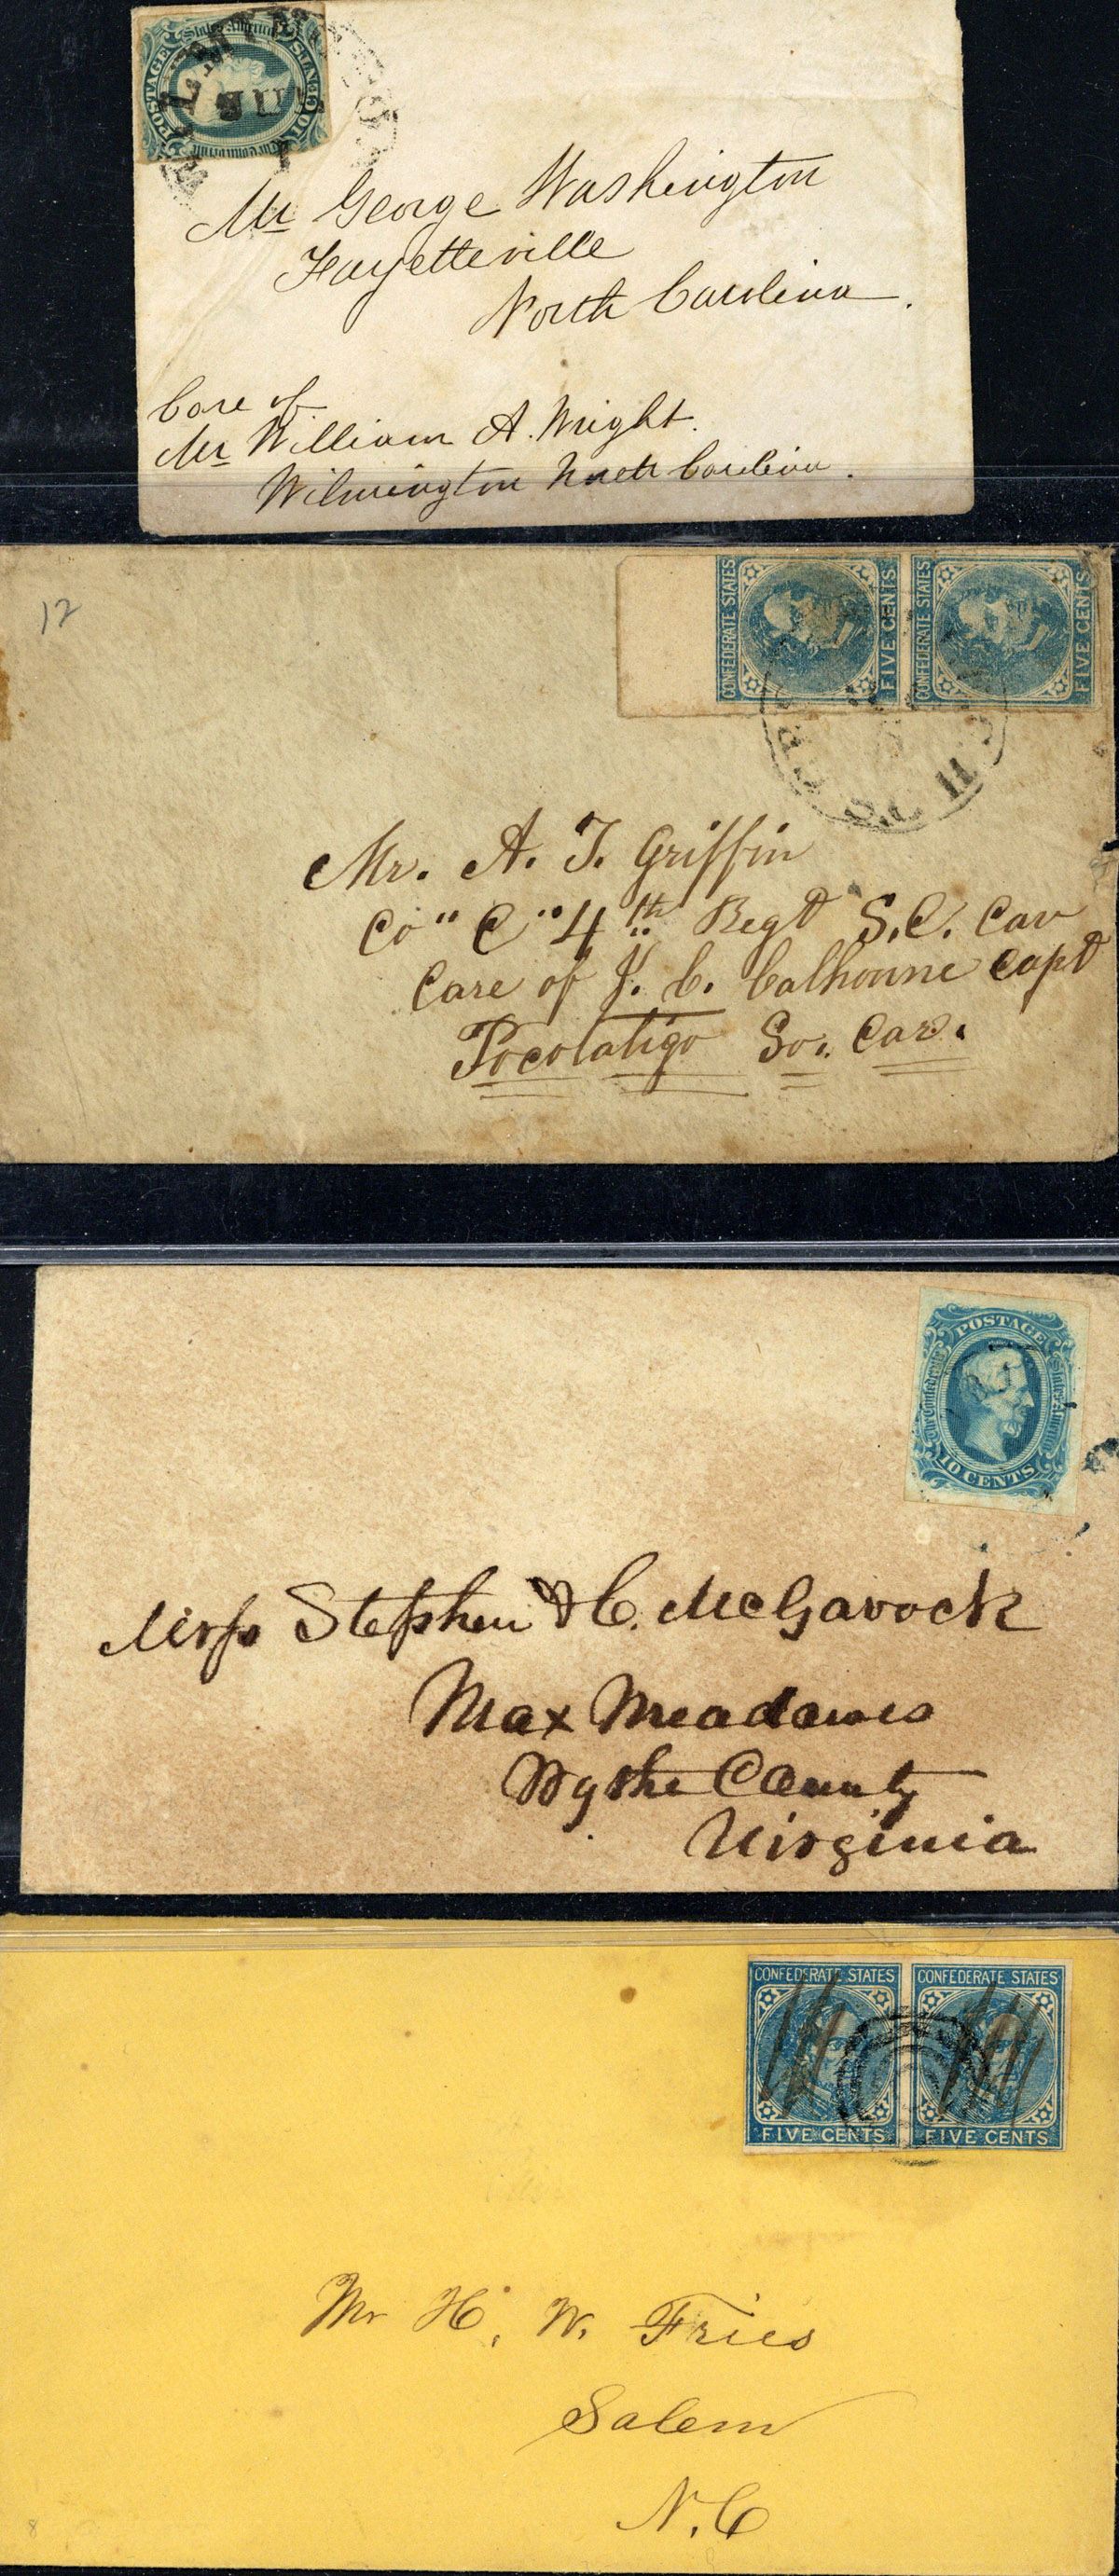 POSTAGE
States America
TEN CENTS
Mr George Washington
Fayetteville
North Carolina.
Care of
Mr William A. Wright.
Wilmington North Carolina.
12
CONFEDERATE STATES
FIVE CENTS
CONFEDERATE STATES
FIVE CENTS
Mr. A. T. Griffin
Co "C" 4th Regt S.C. Cav
Care of J. C. Calhoune Capt
Pocotaligo So. Car.
POSTAGE
The Confederate
States America
10 CENTS
Messrs Stephen & C. McGavock
Max Meadows
Wythe County
Virginia
CONFEDERATE STATES CONFEDERATE STATES
FIVE CENTS FIVE CENTS
Mr H. W. Fries
Salem
N.C
8